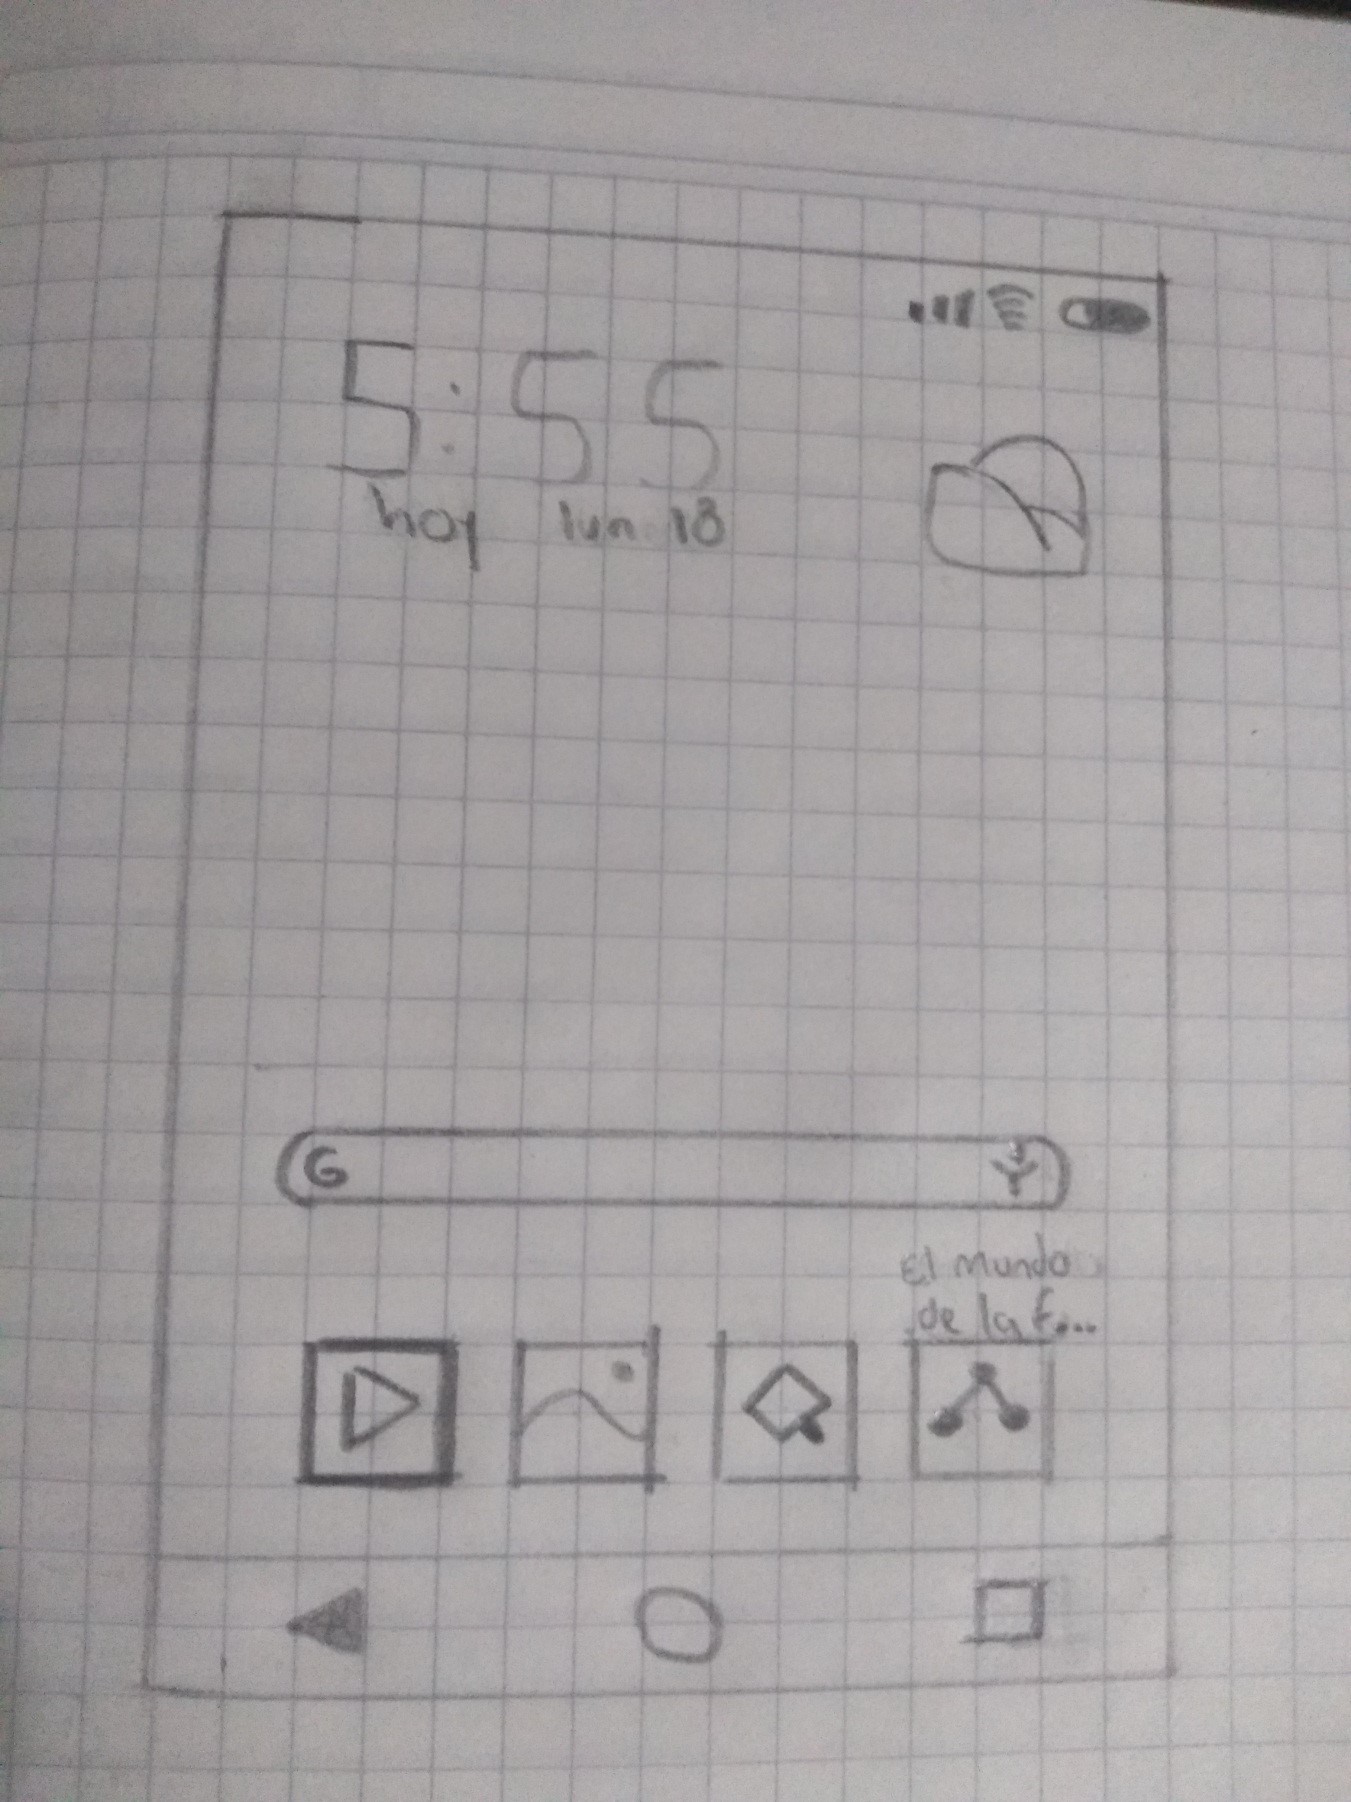 5:55
hoy lun 18
G
El mundo
de la f...